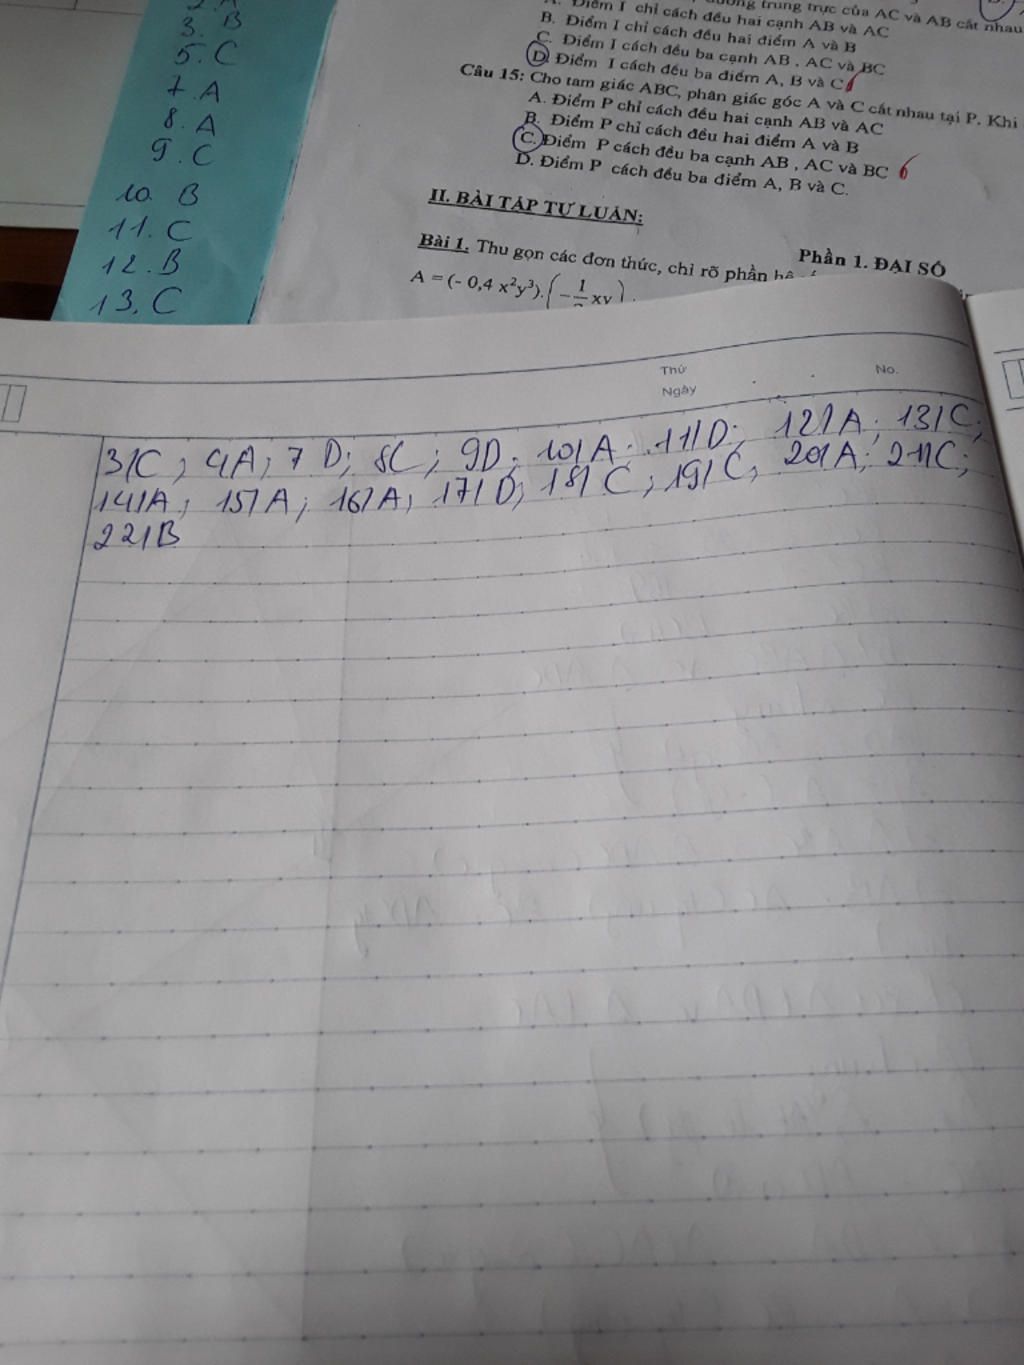 2. A
3. B
5. C
7. A
8. A
9. C
10. B
11. C
12. B
13. C
đường trung trực của AC và AB cắt nhau
A. Điểm I chỉ cách đều hai cạnh AB và AC
B. Điểm I chỉ cách đều hai điểm A và B
C. Điểm I cách đều ba cạnh AB , AC và BC
D. Điểm I cách đều ba điểm A, B và C
Câu 15: Cho tam giác ABC, phân giác góc A và C cắt nhau tại P. Khi
A. Điểm P chỉ cách đều hai cạnh AB và AC
B. Điểm P chỉ cách đều hai điểm A và B
C. Điểm P cách đều ba cạnh AB , AC và BC
D. Điểm P cách đều ba điểm A, B và C.
II. BÀI TẬP TỰ LUẬN:
Phần 1. ĐẠI SỐ
Bài 1. Thu gọn các đơn thức, chỉ rõ phần
A = (- 0,4 x²y³).(-1 xy)
Thứ
Ngày
No.
3/C ; 4A ; 7 D; 8C ; 9D ; 10/A ; 11/D; 12/A ; 13/C;
14/A ; 15/A ; 16/A ; 17/D; 18/C ; 19/C ; 20/A ; 21/C;
22/B